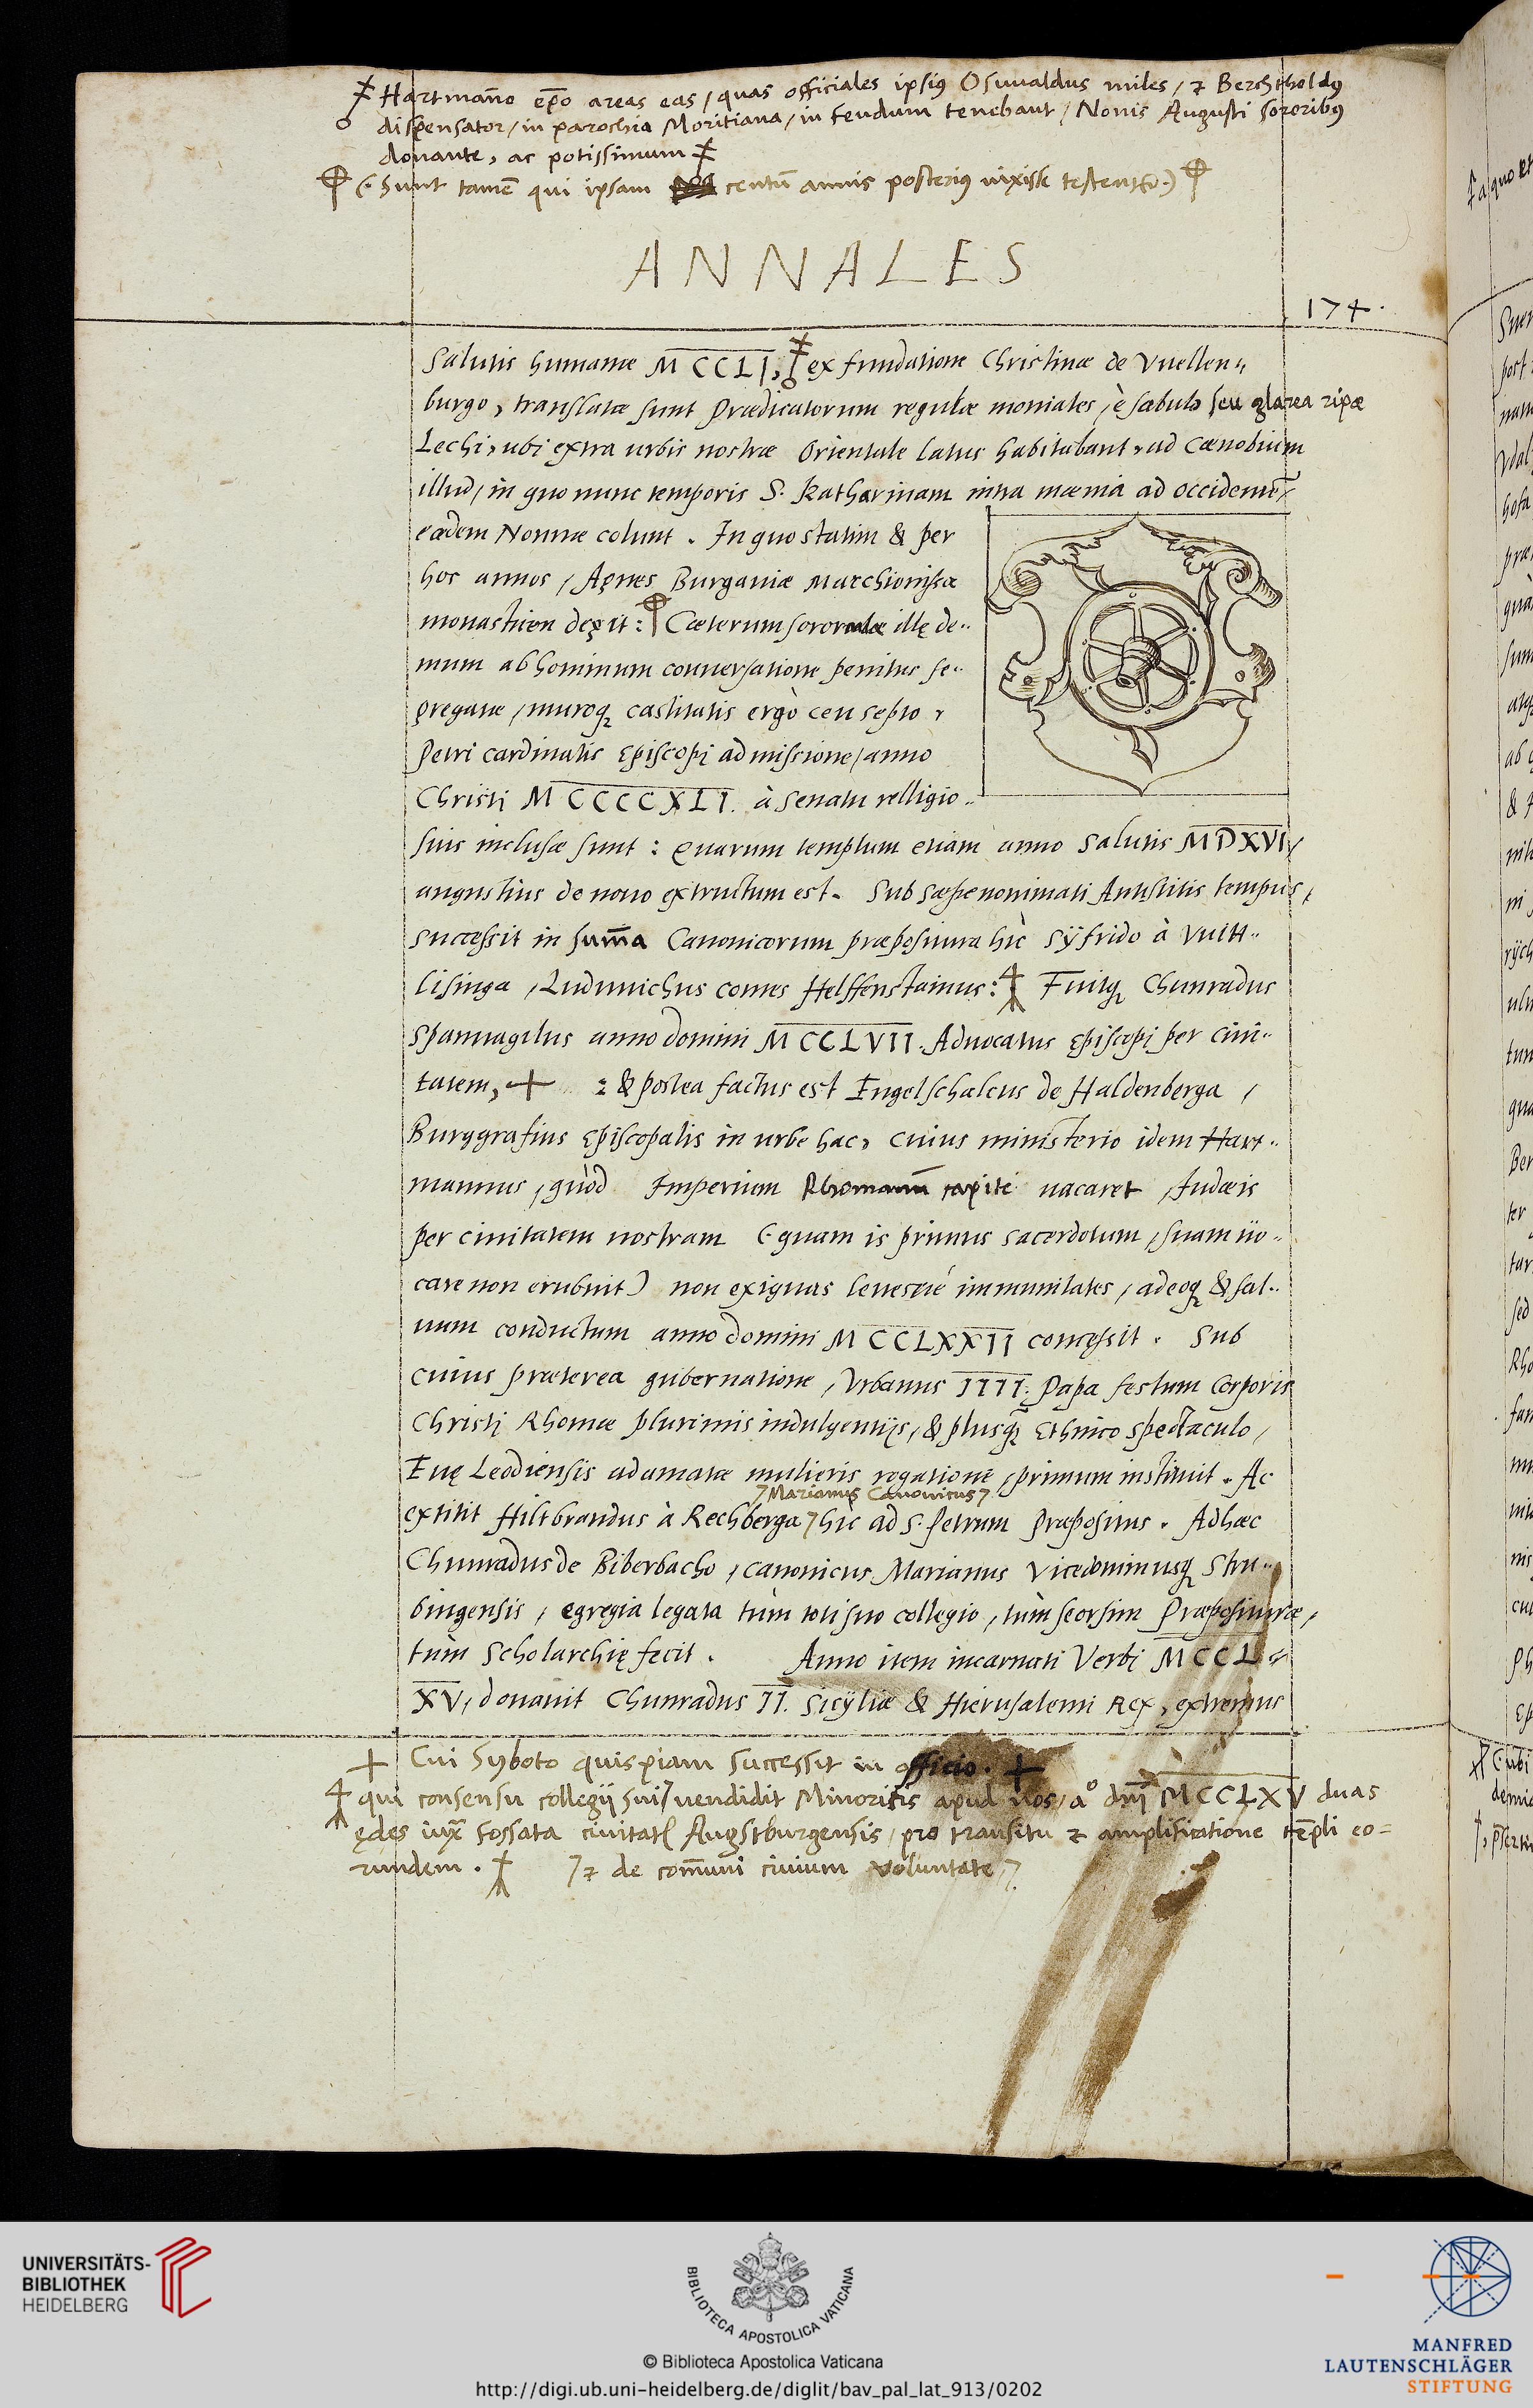 Hartmano epo areas eas / quas officiales ipsius Osvualdus miles / & Berchtholdus
dispensator / in parochia Moritiana / in feudum tenebant / Nonis Augusti sororibus
donante, ac potissimum
(. Sunt tamē qui ipsam centū annis posterius vixisse testentur .)
ANNALES
174.
Salutis humanae MCCLI, ex fundatione Christinae de Vuellen„
burgo, translatae sunt Praedicatorum regulae moniales, è sabulo seu glarea ripae
Lechi, ubi extra urbis nostrae Orientale latus habitabant, ad Caenobium
illud, in quo nunc temporis S. Katharinam intra maenia ad occidentē
eaedem Nonnae colunt. In quo statim & per
hos annos, Agnes Burgaviae Marchionissa
monastrien degit: Caeterum sororculae illę de„
mum ab hominum conversatione penitus se„
gregatae, muroq castitatis ergò ceu septo,
Petri cardinalis Episcopi admissione, anno
Christi MCCCCXLI. à Senatu relligio„
sius inclusae sunt: Quarum templum etiam anno Salutis MDXVI,
angustius de novo extructum est. Sub saepenominati Antistitis tempus,
successit in suma Canonicorum praepositura hic Syfrido à Vuitt„
lisinga, Luduuichus comes Helffenstainus: Fuitq Chunradus
Spannagelus anno domini MCCLVII. Advocatus Episcopi per civi„
tatem, : & postea factus est Engelschalcus de Haldenberga,
Burggrafius Episcopalis in urbe hac, cuius ministerio idem Hart„
mannus, quòd Imperium Rhomanum capite vacaret, Judaeis
per civitatem nostram (quam is primus sacerdotum, suam vo„
care non erubuit) non exiguas levesque immunitates, adeoq & sal„
vum conductum anno domini MCCLXXII concessit. Sub
cuius praeterea gubernatione, Urbanus IIII. Papa festum Corporis
Christi Rhomae plurimis indulgentijs, & plusq̃ Ethnico spectaculo,
Evę Leodiensis adamatae mulieris rogatione, primum instituit. Ac
Marianus Canonicus
extitit Hiltbrandus à Rechberga hic ad S. Petrum Praepositus. Adhaec
Chunradus de Biberbacho, canonicus Marianus Vicedominusq Stru„
bingensis, egregia legata tùm toti suo collegio, tùm seorsim Praepositurae,
tùm Scholarchię fecit. Anno item incarnati Verbi MCCL„
XV, donavit Chunradus II. Sicyliae & Hierusalemi Rex, extremus
Cui Syboto quispiam successit in officio.
qui consensu collegij sui, vendidit Minoritis apud nos, a° dni MCCLXV duas
ędes iuxta fossata civitatis Augstburgensis, pro transitu & amplificatione templi eo=
rundem. & de comuni civium voluntate
UNIVERSITÄTS-
BIBLIOTHEK
HEIDELBERG
BIBLIOTECA APOSTOLICA VATICANA
© Biblioteca Apostolica Vaticana
http://digi.ub.uni-heidelberg.de/diglit/bav_pal_lat_913/0202
MANFRED
LAUTENSCHLÄGER
STIFTUNG